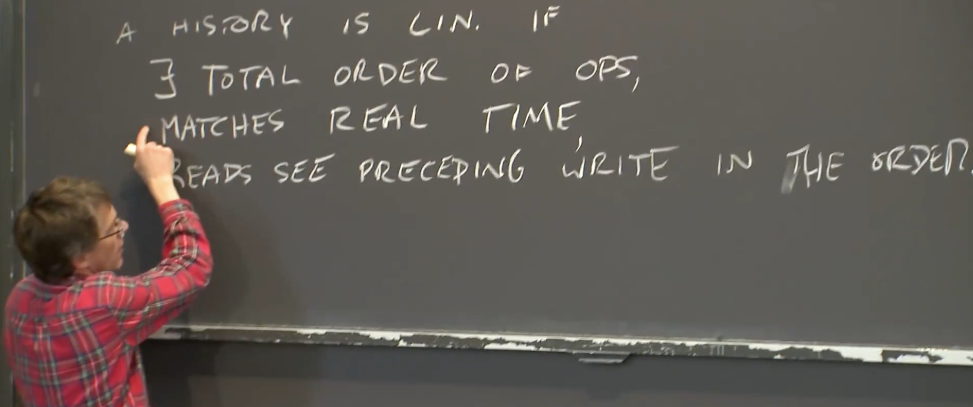 A HISTORY IS LIN. IF
∃ TOTAL ORDER OF OPS,
MATCHES REAL TIME,
READS SEE PRECEDING WRITE IN THE ORDER.